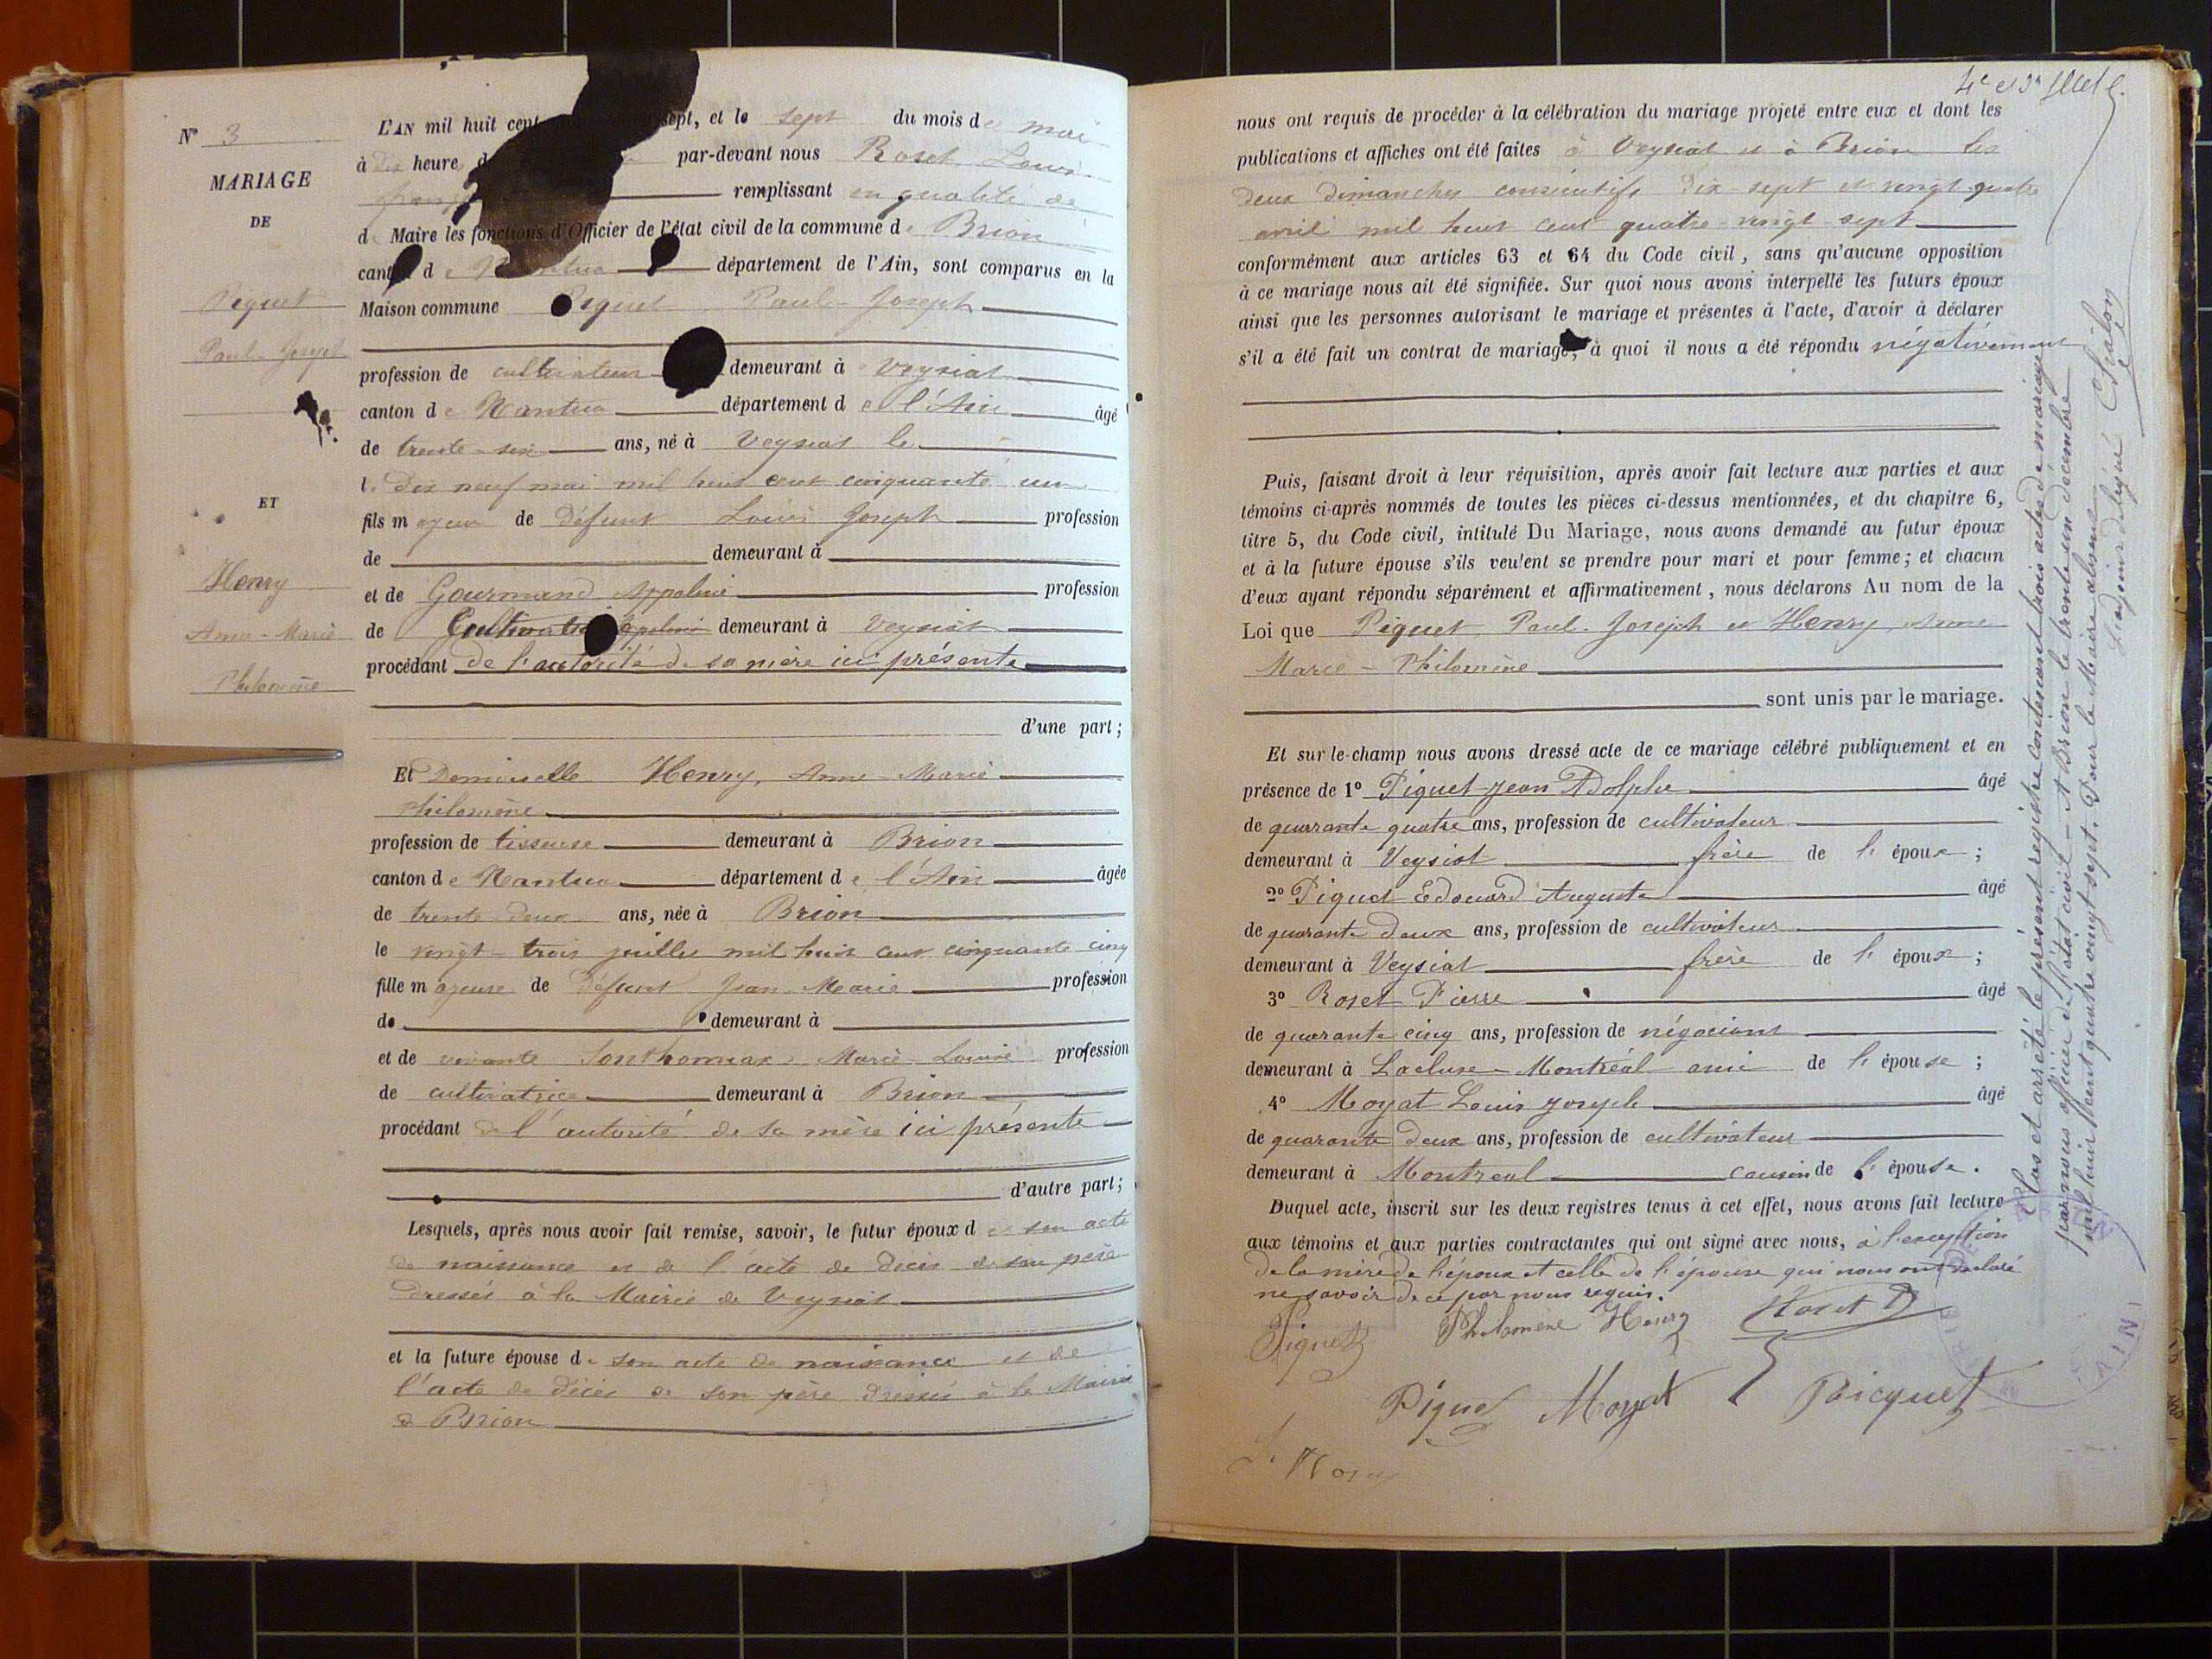 N° 3
MARIAGE
DE
Piquet
Paul-Joseph
ET
Henry
Anne-Marie
Philomène
L'AN mil huit cent sept, et le sept du mois de mai
à dix heures d par-devant nous Roset Louis
remplissant en qualité de
de Maire les fonctions d'Officier de l'état civil de la commune de Brion
canton de Nantua département de l'Ain, sont comparus en la
Maison commune Piquet Paul-Joseph
profession de cultivateur demeurant à Veyziat
canton de Nantua département de l'Ain âgé
de trente-six ans, né à Veyziat le
l. dix neuf mai mil huit cent cinquante un
fils majeur de défunt Louis Joseph profession
de demeurant à
et de Gourmand Appoline profession
de Cultivatrice demeurant à Veyziat
procédant de l'autorité de sa mère ici présente
d'une part ;
Et Demoiselle Henry, Anne-Marie
Philomène
profession de tisseuse demeurant à Brion
canton de Nantua département de l'Ain âgée
de trente-deux ans, née à Brion
le vingt-trois juillet mil huit cent cinquante cinq
fille majeure de Défunt Jean-Marie profession
de demeurant à
et de vivante Sonthonnax Marie-Louise profession
de cultivatrice demeurant à Brion
procédant de l'autorité de sa mère ici présente
d'autre part ;
Lesquels, après nous avoir fait remise, savoir, le futur époux de son acte
de naissance et de l'acte de décès de son père
dressés à la Mairie de Veyziat
et la future épouse de son acte de naissance et de
l'acte de décès de son père dressés à la Mairie
de Brion
4e et dr feuillet
nous ont requis de procéder à la célébration du mariage projeté entre eux et dont les
publications et affiches ont été faites à Veyziat et à Brion les
deux dimanches consécutifs dix-sept et vingt-quatre
avril mil huit cent quatre-vingt-sept
conformément aux articles 63 et 64 du Code civil, sans qu'aucune opposition
à ce mariage nous ait été signifiée. Sur quoi nous avons interpellé les futurs époux
ainsi que les personnes autorisant le mariage et présentes à l'acte, d'avoir à déclarer
s'il a été fait un contrat de mariage, à quoi il nous a été répondu négativement
Puis, faisant droit à leur réquisition, après avoir fait lecture aux parties et aux
témoins ci-après nommés de toutes les pièces ci-dessus mentionnées, et du chapitre 6,
titre 5, du Code civil, intitulé Du Mariage, nous avons demandé au futur époux
et à la future épouse s'ils veulent se prendre pour mari et pour femme ; et chacun
d'eux ayant répondu séparément et affirmativement, nous déclarons Au nom de la
Loi que Piquet, Paul-Joseph et Henry, Anne
Marie-Philomène
sont unis par le mariage.
Et sur-le-champ nous avons dressé acte de ce mariage célébré publiquement et en
présence de 1° Piquet Jean Adolphe âgé
de quarante quatre ans, profession de cultivateur
demeurant à Veysiat frère de l'époux ;
2° Piquet Edouard Auguste âgé
de quarante deux ans, profession de cultivateur
demeurant à Veysiat frère de l'époux ;
3° Roset Pierre âgé
de quarante cinq ans, profession de négociant
demeurant à Lacluse-Montréal ami de l'épouse ;
4° Moyat Louis Joseph âgé
de quarante deux ans, profession de cultivateur
demeurant à Montreal cousin de l'épouse.
Duquel acte, inscrit sur les deux registres tenus à cet effet, nous avons fait lecture
aux témoins et aux parties contractantes qui ont signé avec nous, à l'exception
de la mère de l'époux et celle de l'épouse qui nous ont déclaré
ne savoir de ce par nous requis.
Piquet Philomène Henry Roset P
Piquet Moyat Picquet
Clos et arrêté le présent registre contenant trois actes de mariage
par nous officier de l'état civil - A Brion le trente un décembre
mil huit cent quatre vingt sept. Pour le Maire absent
L'adjoint délégué Chalon